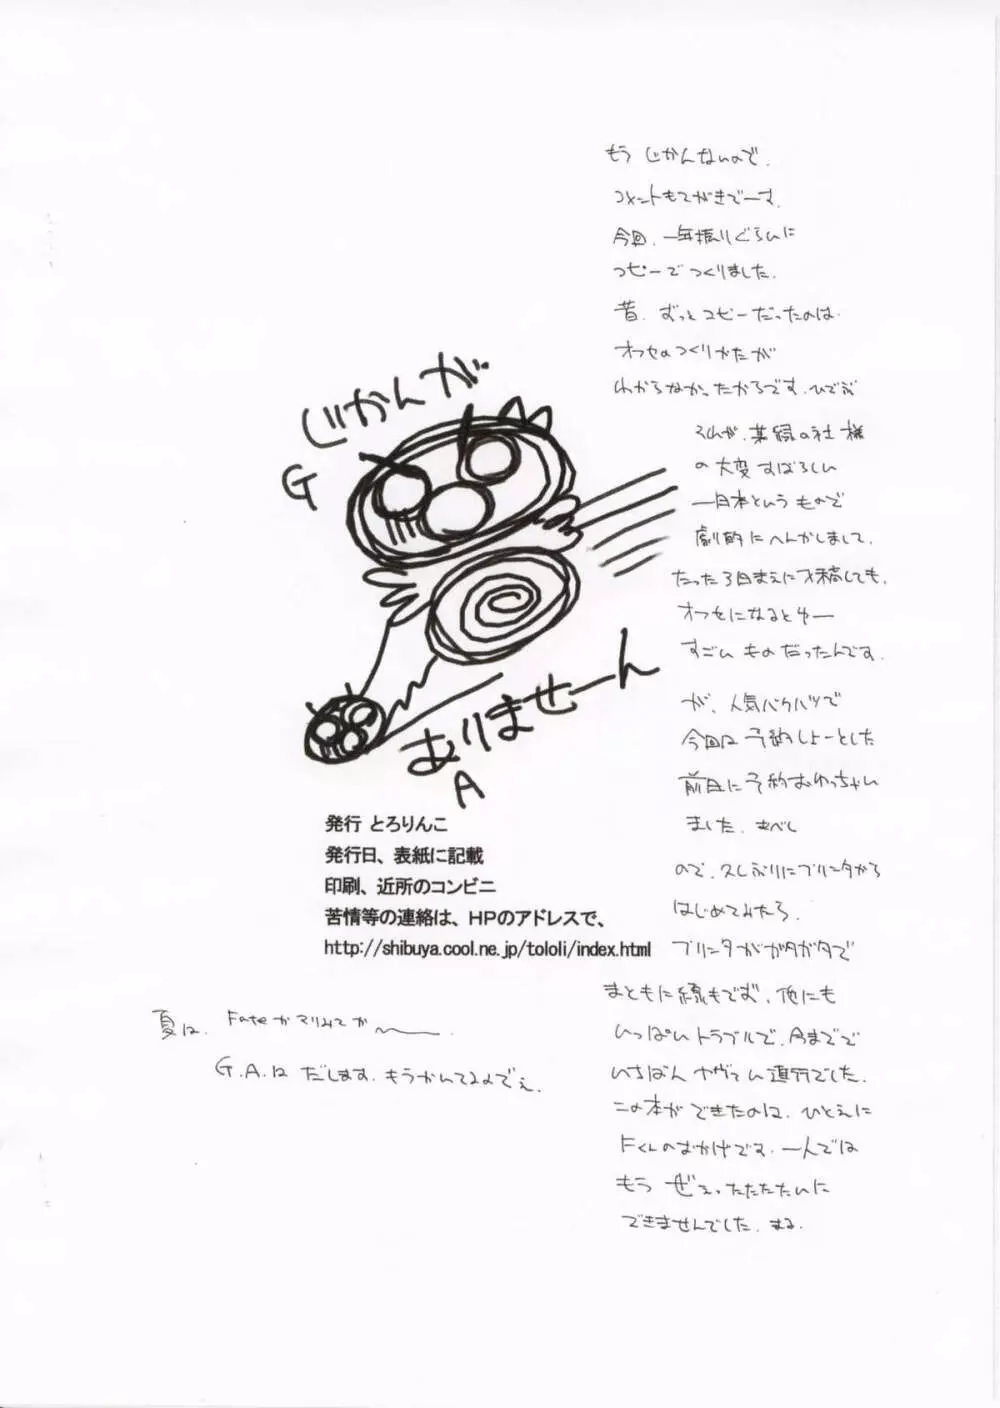 もう じかんないので.
コメントもてがきでーす.
今回. 一年振りぐらいに
コピーでつくりました.
昔. ずっとコピーだったのは.
オフセのつくりかたが
わからなかったからです. ひでぶ
それが. 某緑の社様
の大変すばらしい
一日本というもので
劇的にへんかしまして.
たった3日まえに入稿しても.
オフセになるとゆー
すごい ものだったんです.
が、人気バクハツで
今回は予約しよーとした
前日に予約おわっちゃい
ました. あべし
ので. 久しぶりにプリンタから
はじめてみたら.
プリンタがガタガタで
まともに線もでず. 他にも
いっぱいトラブルで. 今までで
いちばんヤヴァい進行でした.
この本ができたのは. ひとえに
Fくんのおかげです. 一人では
もう ぜぇったたたたいに
できませんでした. まる.
じかんが
G
ありませーん
A
発行 とろりんこ
発行日、表紙に記載
印刷、近所のコンビニ
苦情等の連絡は、HPのアドレスで、
http://shibuya.cool.ne.jp/tololi/index.html
夏は. Fateかマリみてか〜.
G.A.は だします. もうかんてるので.